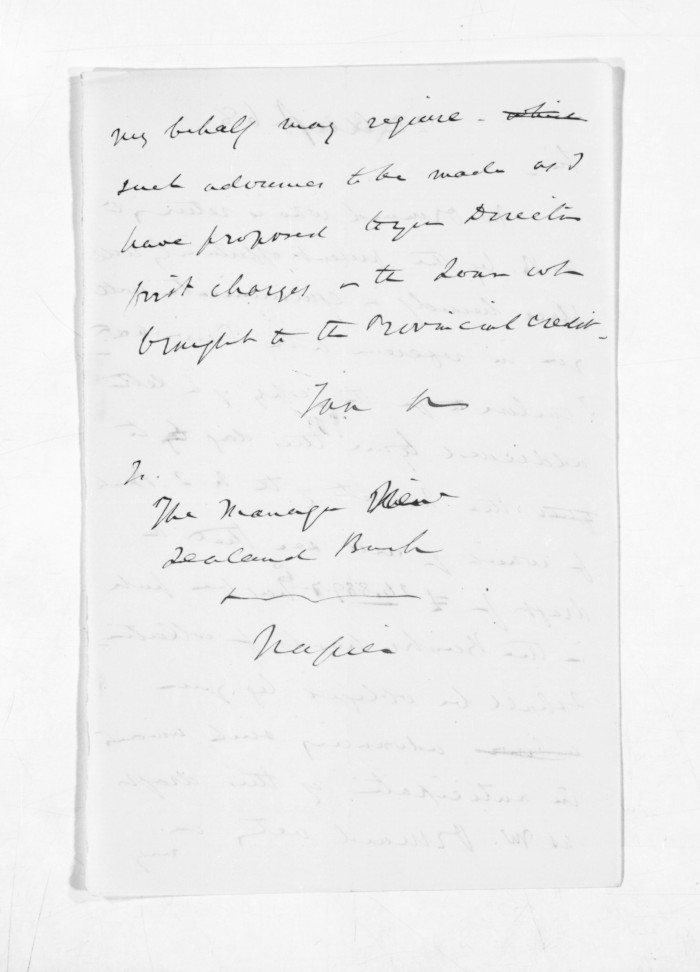 my behalf may require - which
such advances to be made as I
have proposed to your Directors
first charges on the Loan when
brought to the Provincial Credit -
I am
To.
The Manager New
Zealand Bank
Napier